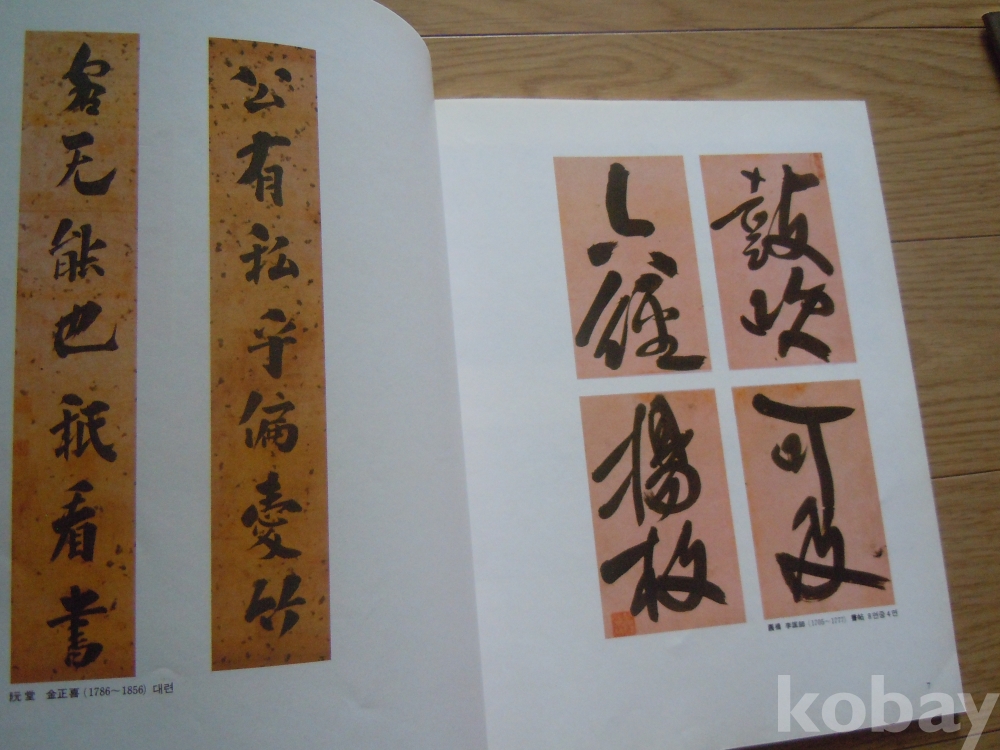 公有私乎偏愛竹
客无能也秖看書
阮堂 金正喜 (1786~1856) 대련
鼓吹
六經
可及
揚枚
圓嶠 李匡師 (1705~1777) 書帖 8면중4면
7
kobay